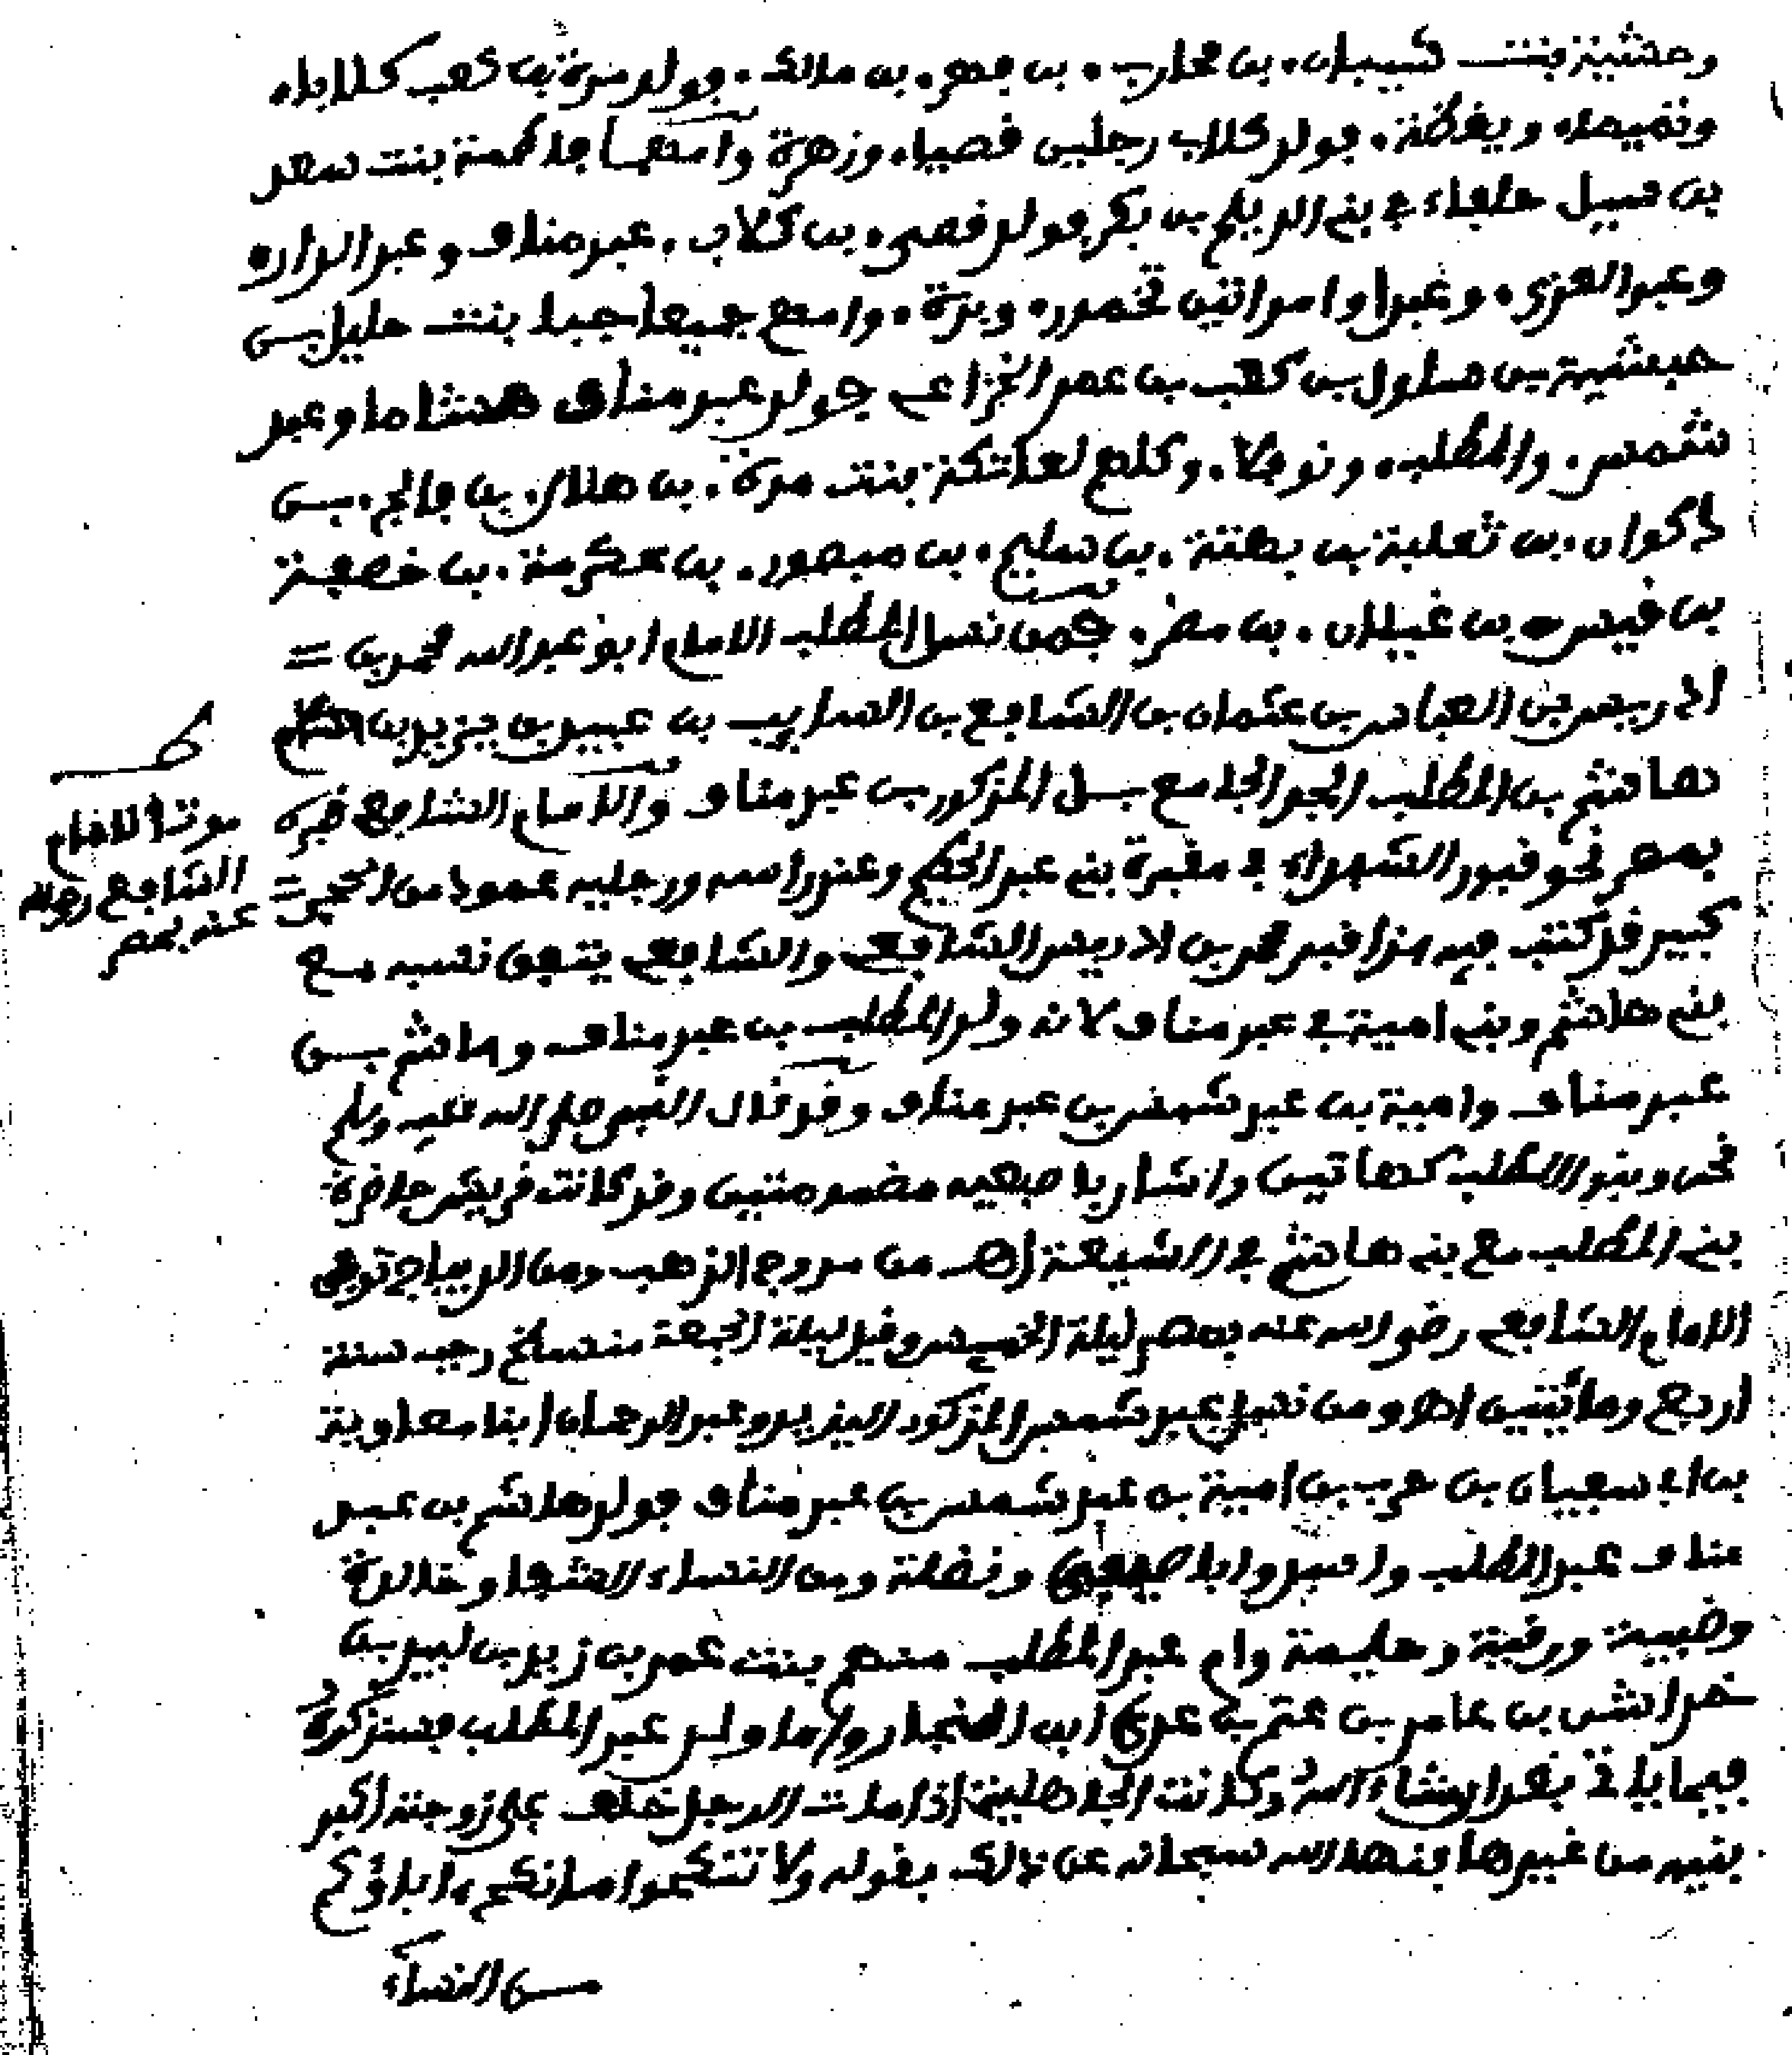 وحشية بنت شيبان بن محارب بن فهر بن مالك فولد مرة بن كعب كلابا
وتميما ويقظة فولد كلاب رجلين قصيا وزهرة وامهما فاطمة بنت سعد
بن سيل حلفاء في بني الديلم بن بكر فولد قصي بن كلاب عبد مناف وعبد الدار
وعبد العزى وعبدا وامراتين تخمور وبرة وامهم جميعا حبا بنت حليل بن
حبشية بن سلول بن كعب بن عمر الخزاعي فولد عبد مناف هشاما وعبد
شمس والمطلب ونوفلا وكلهم لعاتكة بنت مرة بن هلال بن فالج بن
ذكوان بن ثعلبة بن بهثة بن سليم بن منصور بن عكرمة بن خصفة
بن قيس بن غيلان بن مضر فمن نسل المطلب الامام ابو عبد الله محمد بن
ادريس بن العباس بن عثمان بن الشافع بن السايب بن عبيد بن يزيد بن
هاشم بن المطلب الجد الجامع بسل المذكور بن عبد مناف والامام الشافعي قبره
بمصر نحو قبور الشهداء في مقبرة بني عبد الحكم وعند راسه ورجليه عمود من الحجر
كبير قد كتب فيه هذا قبر محمد بن الادريس الشافعي والشافعي يتفق نسبه مع
بني هاشم وبني امية في عبد مناف لانه ولد المطلب بن عبد مناف وهاشم بن
عبد مناف وامية بن عبد شمس بن عبد مناف وقد قال النبي صلى الله عليه وسلم
نحن وبنو المطلب كهاتين واشار باصبعيه مضمومتين وقد كانت قريش حاضرة
بني المطلب مع بني هاشم في الشيعة اهـ من مروج الذهب ومن الديباج توفي
الامام الشافعي رضي الله عنه بمصر ليلة الخميس وقيل ليلة الجمعة منسلخ رجب سنة
اربع ومائتين اهـ ومن نسل عبد شمس المذكور اليزيد وعبد الرحمان ابنا معاوية
بن ابي سفيان بن حرب بن امية بن عبد شمس بن عبد مناف فولد هاشم بن عبد
مناف عبد المطلب واسد وابا صيفي ونضلة ومن النساء الشفا وخالدة
وضبيبة ورقية وحليمة وام عبد المطلب منهم بنت عمر بن زيد بن لبيد بن
خراش بن عامر بن عتم بن عدي ابن النجار واما ولد عبد المطلب فسنذكره
فيما ياتي بعد ان شاء الله وكانت الجاهلية اذا مات الرجل خلف على زوجته اكبر
بنيه من غيرها فنهى الله سبحانه عن ذالك بقوله ولا تنكحوا ما نكح اباؤكم
من النساء
موت الامام
الشافعي رضي الله
عنه بمصر